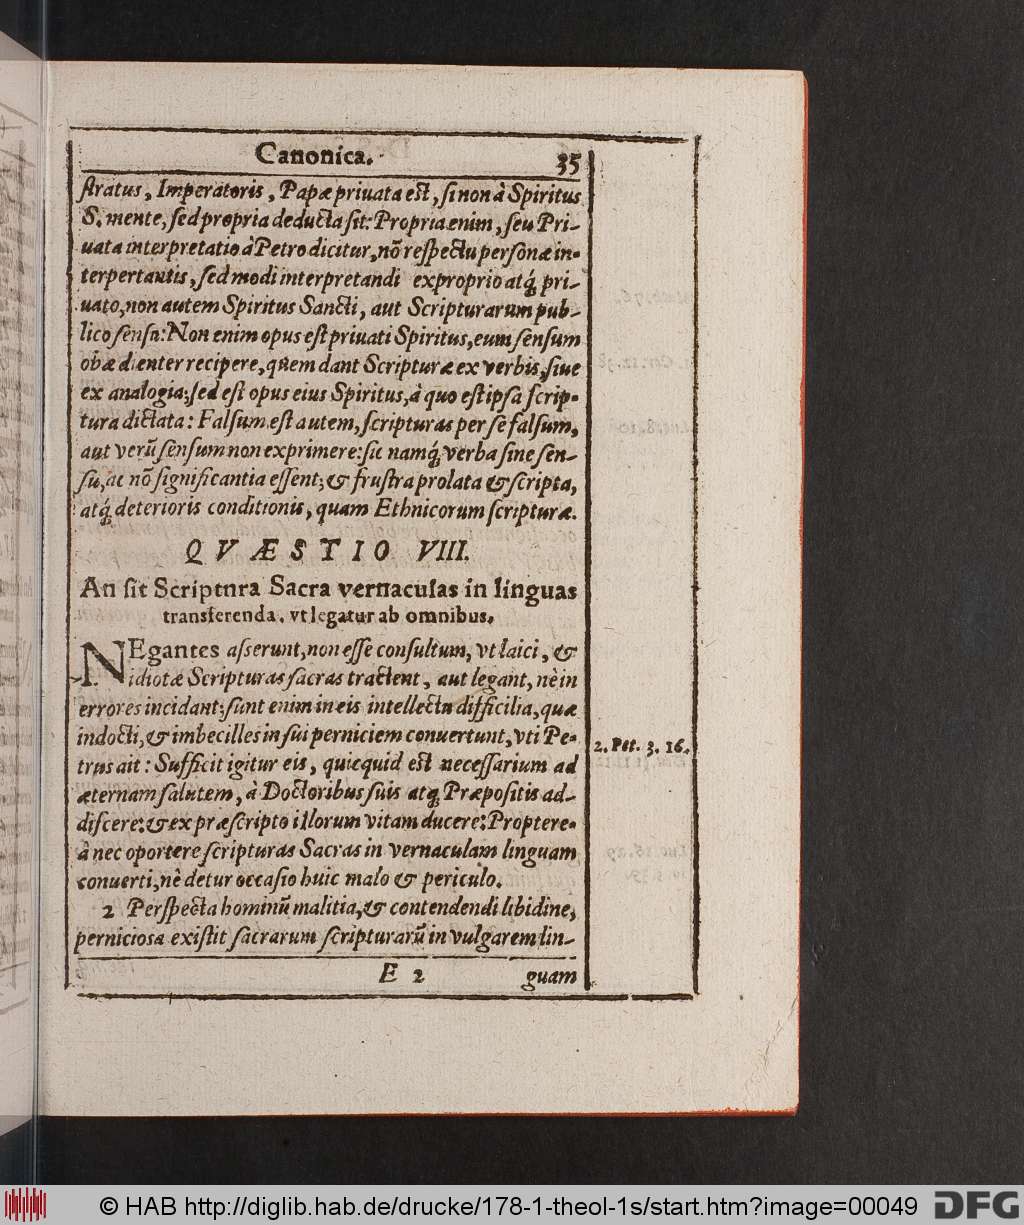 Canonica. 35
ſtratus, Imperatoris, Papæ priuata eſt, ſi non à Spiritus
S. mente, ſed propria deducta ſit: Propria enim, ſeu Pri-
uata interpretatio à Petro dicitur, nō reſpectu perſonæ in-
terpertantis, ſed modi interpretandi ex proprio atq́; pri-
uato, non autem Spiritus Sancti, aut Scripturarum pub-
lico ſenſu: Non enim opus eſt priuati Spiritus, eum ſenſum
obædienter recipere, quem dant Scripturæ ex verbis, ſiue
ex analogia; ſed eſt opus eius Spiritus, à quo eſt ipſa ſcrip-
tura dictata: Falſum eſt autem, ſcripturas per ſe falſum,
aut verū ſenſum non exprimere: ſic namq́; verba ſine ſen-
ſu, ac nō ſignificantia eſſent; & fruſtra prolata & ſcripta,
atq́; deterioris conditionis, quam Ethnicorum ſcripturæ.
QVÆSTIO VIII.
An ſit Scriptnra Sacra vernaculas in linguas
transferenda, vt legatur ab omnibus.
NEgantes aſſerunt, non eſſe conſultum, vt laici, &
idiotæ Scripturas ſacras tractent, aut legant, nè in
errores incidant; ſunt enim in eis intellectu difficilia, quæ
indocti, & imbecilles in ſui perniciem conuertunt, vti Pe-
trus ait: Sufficit igitur eis, quicquid eſt neceſſarium ad
æternam ſalutem, à Doctoribus ſuis atq́; Præpoſitis ad-
diſcere: & ex præſcripto illorum vitam ducere: Proptere-
à nec oportere ſcripturas Sacras in vernaculam linguam
conuerti, nè detur occaſio huic malo & periculo.
2 Perſpecta hominū malitia, & contendendi libidine,
pernicioſa exiſtit ſacrarum ſcripturarū in vulgarem lin-
E 2 guam
2. Pet. 3. 16.
© HAB http://diglib.hab.de/drucke/178-1-theol-1s/start.htm?image=00049
DFG